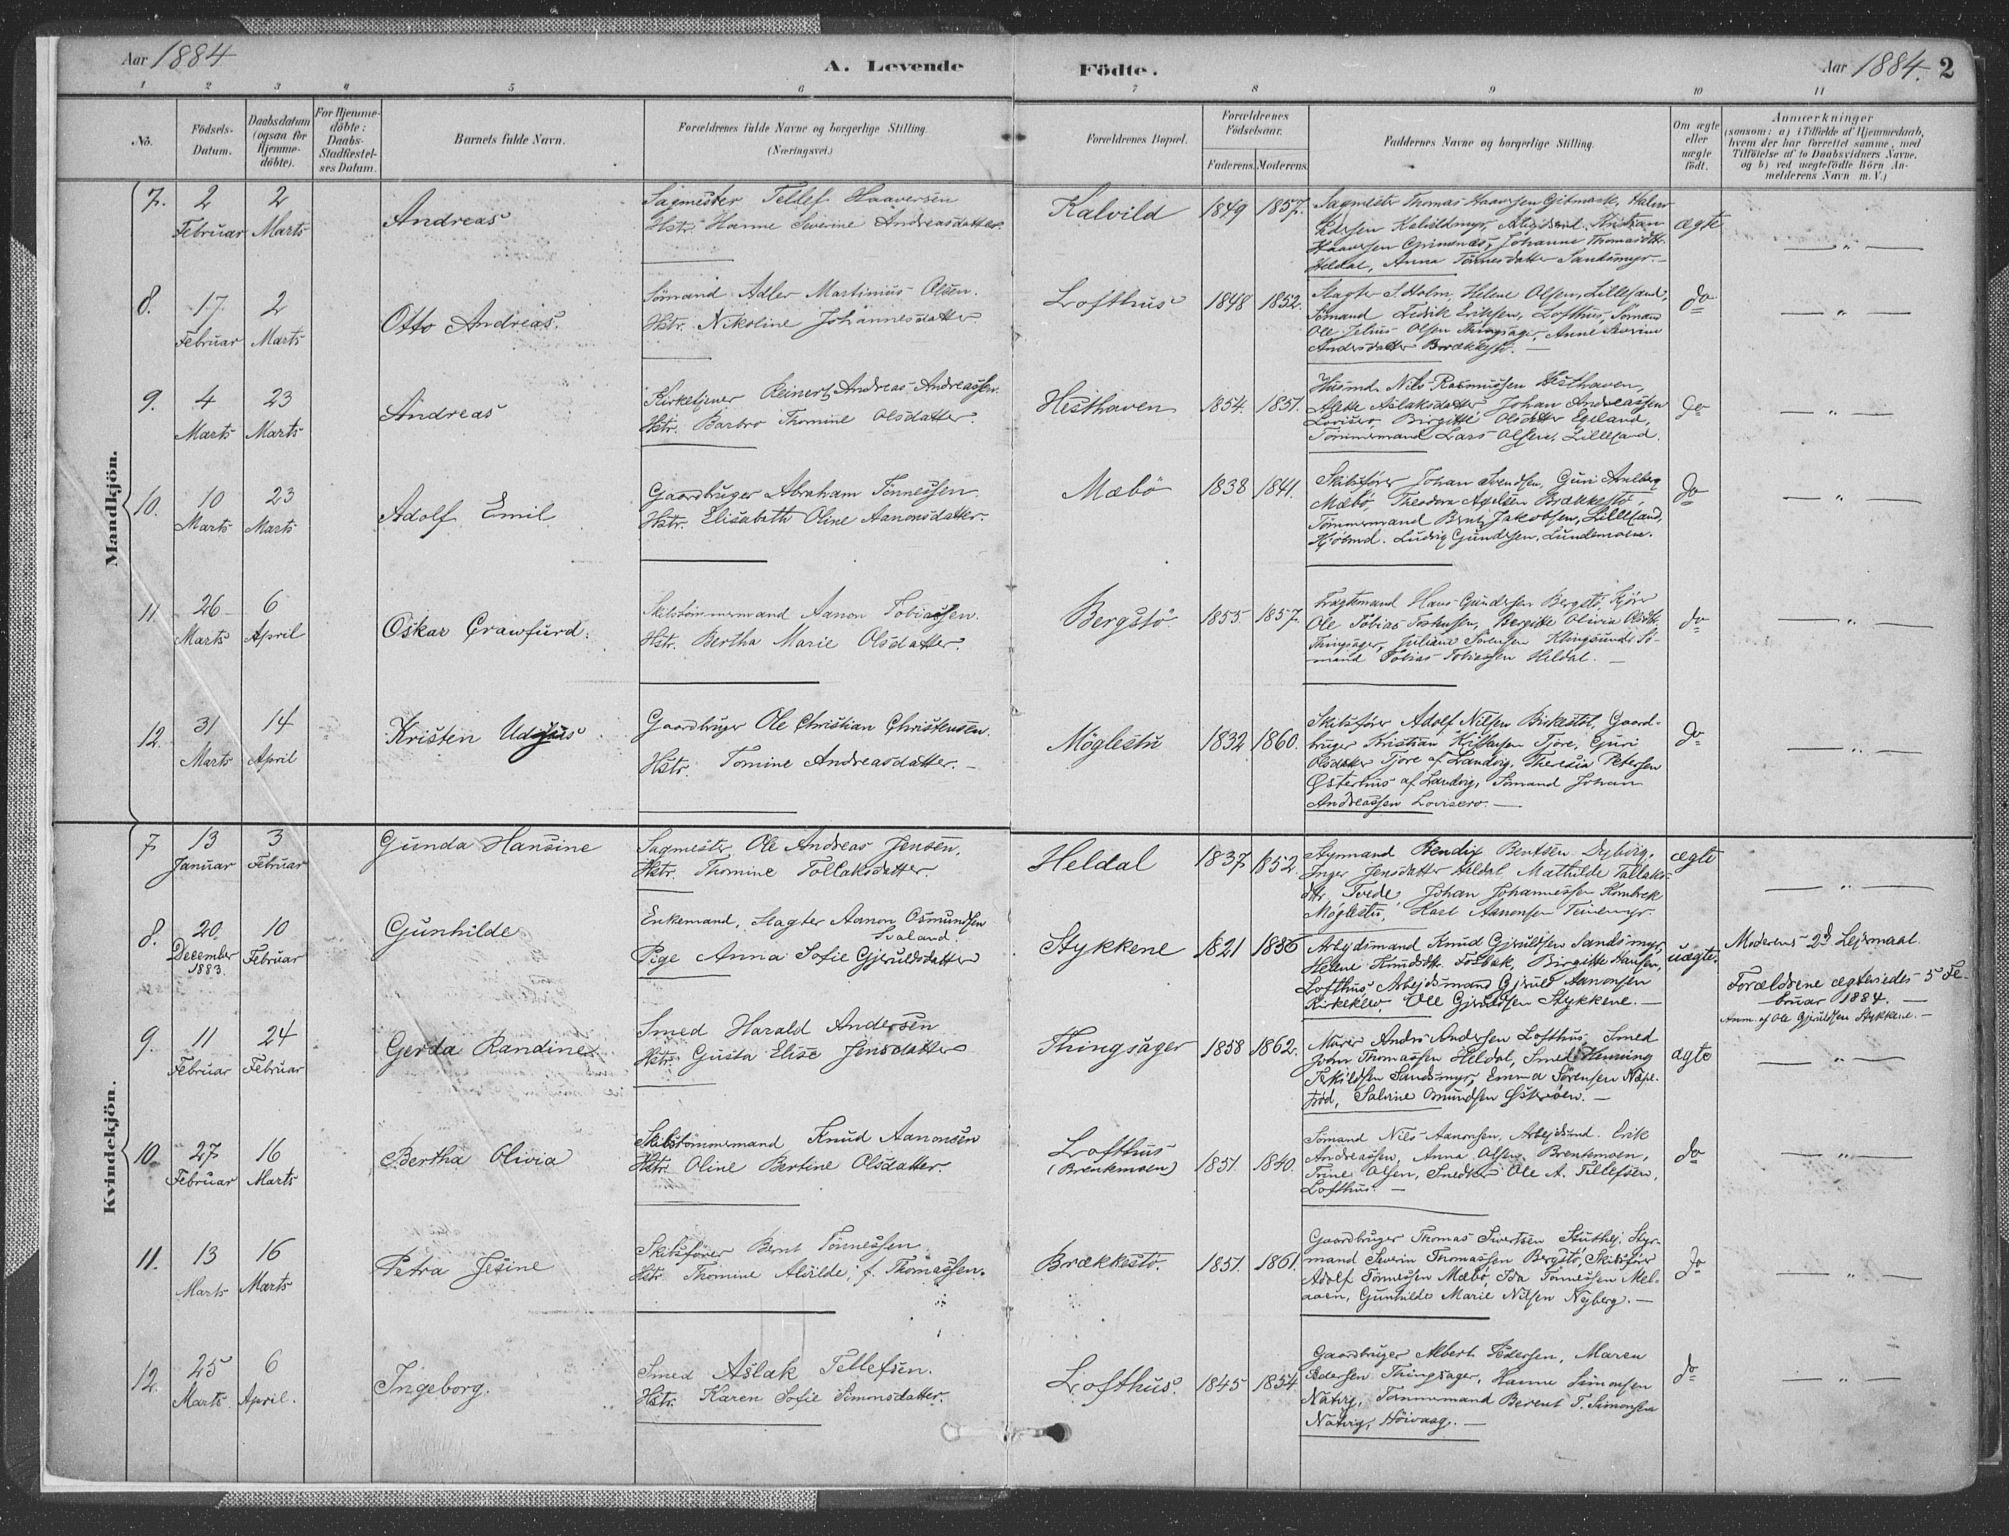 Aar 1884
A. Levende
Födte.
Aar 1884.
2
1 2 3 4 5 6 7 8 9 10 11
No.
Födsels-
Datum.
Daabsdatum
(ogsaa for
Hjemme-
döbte).
For Hjemme-
döbte:
Daabs-
Stadfestel-
ses Datum.
Barnets fulde Navn.
Forældrenes fulde Navne og borgerlige Stilling.
(Næringsvei.)
Forældrenes Bopæl.
Forældrenes
Födselsaar.
Faderens. Moderens.
Faddernes Navne og borgerlige Stilling.
Om ægte
eller
uægte
födt.
Anmærkninger
(saasom: a) i Tilfælde af Hjemmedaab,
hvem der har forrettet samme, med
Tilföielse af to Daabsvidners Navne,
og b) ved uægtefödte Börn An-
melderens Navn m. V.)
Mandkjön.
7. 2
Februar
2
Marts
Andreas
Sagmester Tellef Haaversen
Hstr. Hanne Severine Andreasdatter.
Kalvild
1849 1857.
Sagmester Thomas Haaversen Gitmark, Halvor
Pedersen Kalvildmyr, Arbejdsmd. Kristian
Haaversen Grimenæs, Johanne Thomasdtr.
Heldal, Anna Tönnesdatter Sandsmyr. —
ægte
— " —
8. 17
Februar
2
Marts
Otto Andreas.
Sömand Adler Martinius Olsen.
Hstr. Nikoline Johannesdatter.
Lofthus
1848 1852.
Slagter S. Holm, Helene Olsen, Lillesand,
Sömand Ludvik Eriksen, Lofthus, Sömand
Ole Julius Olsen Thingsager, Anne Severine
Andersdatter Brækkestö. —
do
— " —
9. 4
Marts
23
Marts
Andreas
Kirketjener Reinert Andreas Andreassen.
Hstr. Barbro Thomine Olsdatter.
Hesthaven
1854. 1851.
Husmd. Nils Rasmussen Hesthaven,
Agethe Aslaksdatter, Johan Andreassen
Lovisero, Birgitte Olsdatter Egeland,
Tömmermand Lars Olsen, Lillesand.
do
— " —
10. 10
Marts
23
Marts
Adolf Emil
Gaardbruger Abraham Tönnessen
Hstr. Elisabeth Oline Aanonsdatter.
Mæbö
1838 1841.
Skibsförer Johan Svendsen, Guri
Mæbö, Theodora Axelsen Brækkestö,
Tömmermand Bent Jakobsen, Lillesand,
Kjöbmd. Ludvig Gundersen, Lundemoen.
do
— " —
11. 26
Marts
6
April
Oskar Crawfurd.
Skibstömmermand Aanon Tobiassen.
Hstr. Bertha Marie Olsdatter.
Bergstö
1855. 1857.
Fragtemand Hans Gundersen Bergstö,
Ole Tobias Birgitte Olivia Olsdtr.
Thingsager, Juliane Sörensen Klingsund, Sö-
mand Tobias Tobiassen Heldal. —
do
— " —
12. 31
Marts
14
April
Kristen
Gaardbruger Ole Christian Christensen.
Hstr. Tomine Andreasdatter. —
Möglestu
1832 1860.
Skibsförer Adolf Nilsen Birkestöl, Gaard-
bruger Kristian Tjore, Guri
Olsdatter Tjore af Landvig, Theresia Petersen
Østerhus af Landvig, Sömand Johan
Andreassen Lovisero. —
do
— " —
Kvindekjön.
7 13
Januar
3
Februar
Gunda Hansine
Sagmester Ole Andreas Jensen,
Hstr. Thomine Tollaksdatter
Heldal
1837 1852.
Styrmand Bendix Bentsen Dybörg,
Inger Jensdatter Heldal, Mathilde Tallaks-
dtr. Tvede, Johan Johannessen
Möglestu, Karl Aanonsen
ægte
— " —
8. 20.
December
1883.
10
Februar
Gunhilde
Enkemand, Slagter Aanon Osmundsen
Svaland.
Pige Anna Sofie Gjeruldsdatter
Stykkene
1821 1856
Arbejdsmand Knud Gjeruldsen Sandsmyr,
Helene Knudsdtr. Fosbæk, Birgitte Hansen,
Lofthus, Arbejdsmand Gjeruld Aanonsen
Kirkeklev, Ole Gjeruldsen Stykkene. —
uægte.
Moderens 2d Lejrmaal.
Forældrene ægteviedes 5 Fe-
bruar 1884. —
Anm. af Ole Gjeruldsen Stykkene. —
9. 11
Februar
24
Februar
Gerda Randine
Smed Harald Andersen
Hstr. Gusta Elise Jensdatter
Thingsager
1858 1862.
Murer Andr. Andersen Lofthus, Smed
John Thomassen Heldal, Smed Henning
Terkildsen Sandsmyr, Emma Sörensen
Salvine Omundsen Österöen. —
ægte
— " —
10. 27
Februar
16
Marts
Bertha Olivia
Skibstömmermand Knud Aanonsen
Hstr. Oline Bertine Olsdatter.
Lofthus
(Brenkemoen)
1851. 1840.
Sömand Nils Aanonsen, Arbejdsmd. Erik
Andreassen, Anna Olsen, Brentemoen,
Trine Olsen, Snedker Ole A. Tellefsen,
Lofthus. —
do
— " —
11. 13
Marts
16
Marts
Petra Jesine
Skibsförer Bernt Tönnessen
Hstr. Thomine Alvilde, f. Thomassen.
Brækkestö.
1851. 1861.
Gaardbruger Thomas Sivertsen Stuthej, Styr-
mand Severin Thomassen Bergstö, Skibsförer
Adolf Tönnessen Mæbö, Ida Tönnessen Mel-
aaen, Gunhilde Marie Nilsen Nyberg. —
do
— " —
12. 25
Marts
6
April.
Ingeborg.
Smed Aslak Tellefsen.
Hstr. Karen Sofie Simonsdatter.
Lofthus.
1845 1854
Gaardbruger Albert Pedersen, Maren
Pedersen Thingsager, Hanne Simonsen
Natvig, Tömmermand Berent T. Simonsen
Natvig, Höivaag. —
do
— " —